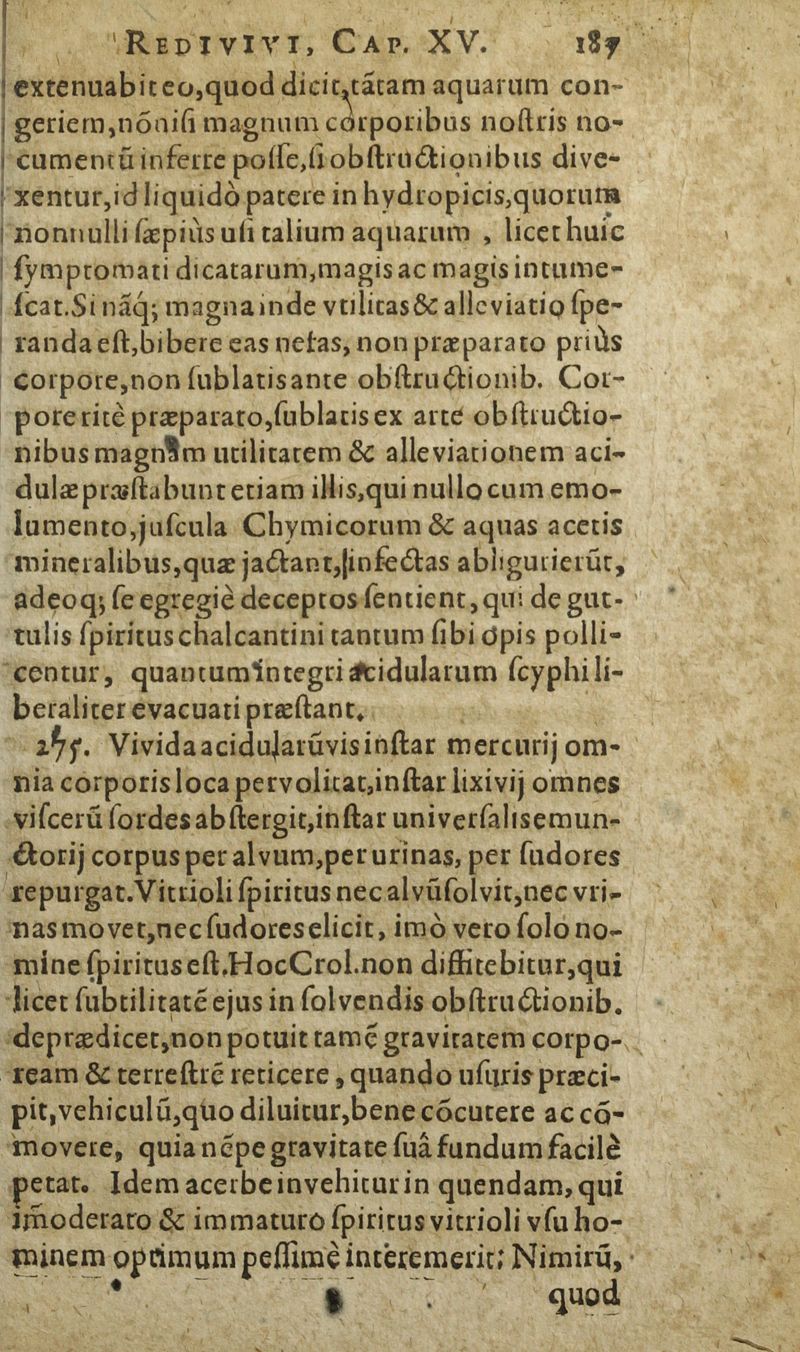 REDIVIVI, CAP. XV. 187
extenuabit eo,quod dicit,tãtam aquarum con-
geriem,nõnisi magnum corporibus nostris no-
cumentũ inferre posse,si obstructionibus dive-
xentur,id liquidò patere in hydropicis,quorum
nonnulli sæpiùs usi talium aquarum , licet huic
symptomati dicatarum,magis ac magis intume-
scat.Si nãq; magna inde vtilitas & alleviatio spe-
randa est,bibere eas nefas, non præparato priùs
corpore,non sublatis ante obstructionib. Cor-
pore ritè præparato,sublatis ex arte obstructio-
nibus magnam utilitatem & alleviationem aci-
dulæ præstabunt etiam illis,qui nullo cum emo-
lumento,juscula Chymicorum & aquas acetis
mineralibus,quæ jactant,infectas abligurierũt,
adeoq; se egregiè deceptos sentient, qui de gut-
tulis spiritus chalcantini tantum sibi opis polli-
centur, quantum integri acidularum scyphi li-
beraliter evacuati præstant.
Vivida acidularũ vis instar mercurij om-
nia corporis loca pervolitat,instar lixivij omnes
viscerũ sordes abstergit,instar universalis emun-
ctorij corpus per alvum,per urinas, per sudores
repurgat.Vitrioli spiritus nec alvũ solvit,nec vri-
nas movet,nec sudores elicit, imò vero solo no-
mine spiritus est.Hoc Crol.non diffitebitur,qui
licet subtilitatẽ ejus in solvendis obstructionib.
deprædicet,non potuit tamẽ gravitatem corpo-
ream & terrestrẽ reticere , quando usuris præci-
pit,vehiculũ,quo diluitur,bene cõcutere ac cõ-
movere, quia nẽpe gravitate suâ fundum facilè
petat. Idem acerbe invehitur in quendam, qui
im̃oderato & immaturo spiritus vitrioli vsu ho-
minem optimum pessimè interemerit: Nimirũ,
quod